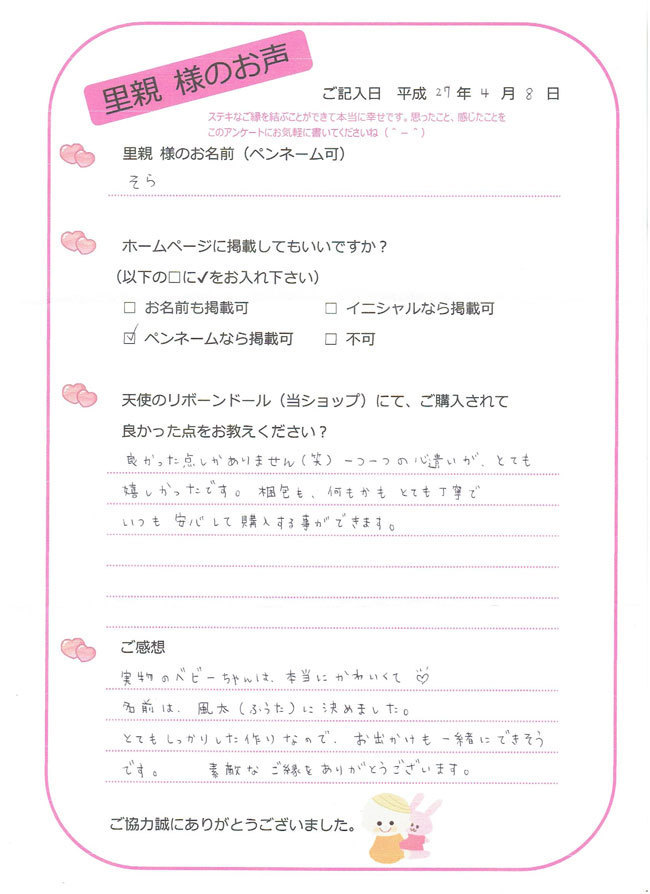 里親 様のお声
ご記入日 平成 27 年 4 月 8 日
ステキなご縁を結ぶことができて本当に幸せです。思ったこと、感じたことを
このアンケートにお気軽に書いてくださいね（＾－＾）
里親 様のお名前（ペンネーム可）
そら
ホームページに掲載してもいいですか？
（以下の□に✓をお入れ下さい）
□ お名前も掲載可 □ イニシャルなら掲載可
☑ ペンネームなら掲載可 □ 不可
天使のリボーンドール（当ショップ）にて、ご購入されて
良かった点をお教えください？
良かった点しかありません（笑）一つ一つの心遣いが、とても
嬉しかったです。梱包も、何もかもとても丁寧で
いつも安心して購入する事ができます。
ご感想
実物のベビーちゃんは、本当にかわいくて♡
名前は、風太（ふうた）に決めました。
とてもしっかりした作りなので、お出かけも一緒にできそう
です。 素敵なご縁をありがとうございます。
ご協力誠にありがとうございました。